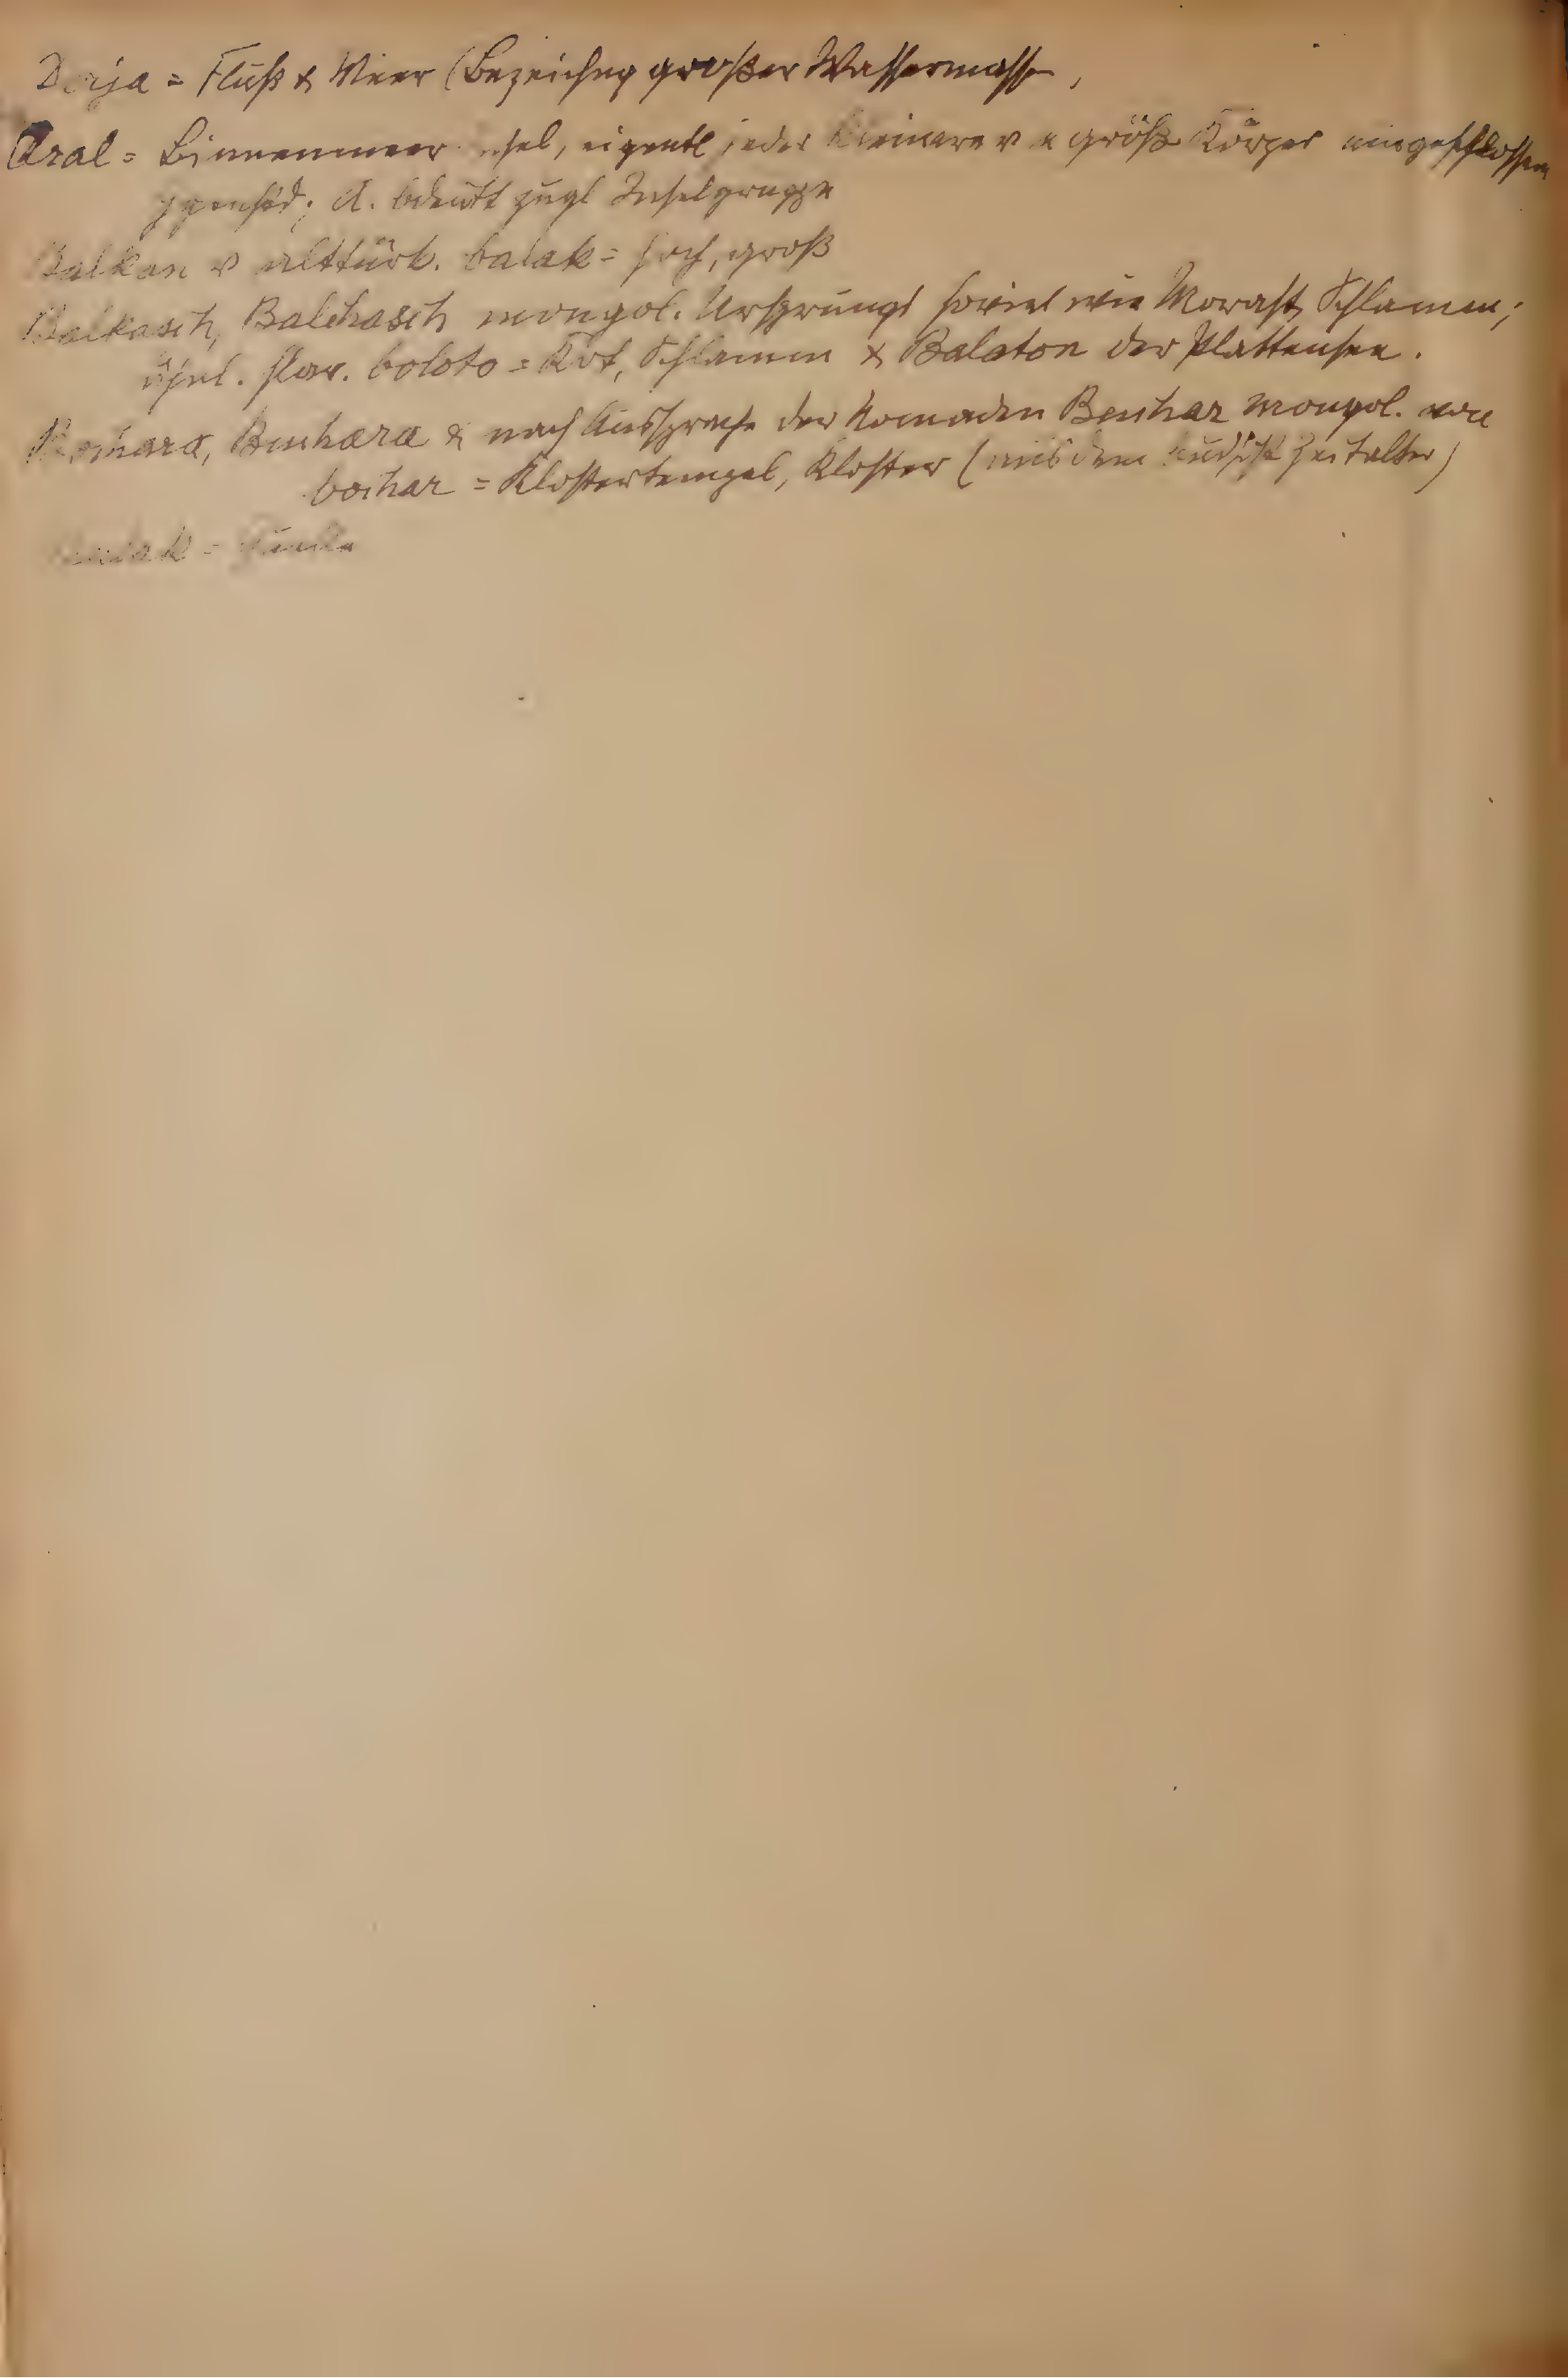 Darja = Fluß & Meer (Bezeichng großer Wassermasse,
Aral = Binnenmeer Insel, eigentl jeder kleinere v e größ Körper eingeschlossen
Ggenstd; A. bdeutt zugl Inselgruppe
Balkan v alttürk. balak = hoch, groß
Balkasch, Balchasch mongol. Ursprungs soviel wie Morast, Schlamm;
ähnl. slav. boloto = Kot, Schlamm & Balaton der Plattensee.
Bochara, Buchara & nach Aussprache der Nomaden Buchar mongol. von
bochar = Klostertempel, Kloster (aus dem budhist Zeitalter)
= Quelle